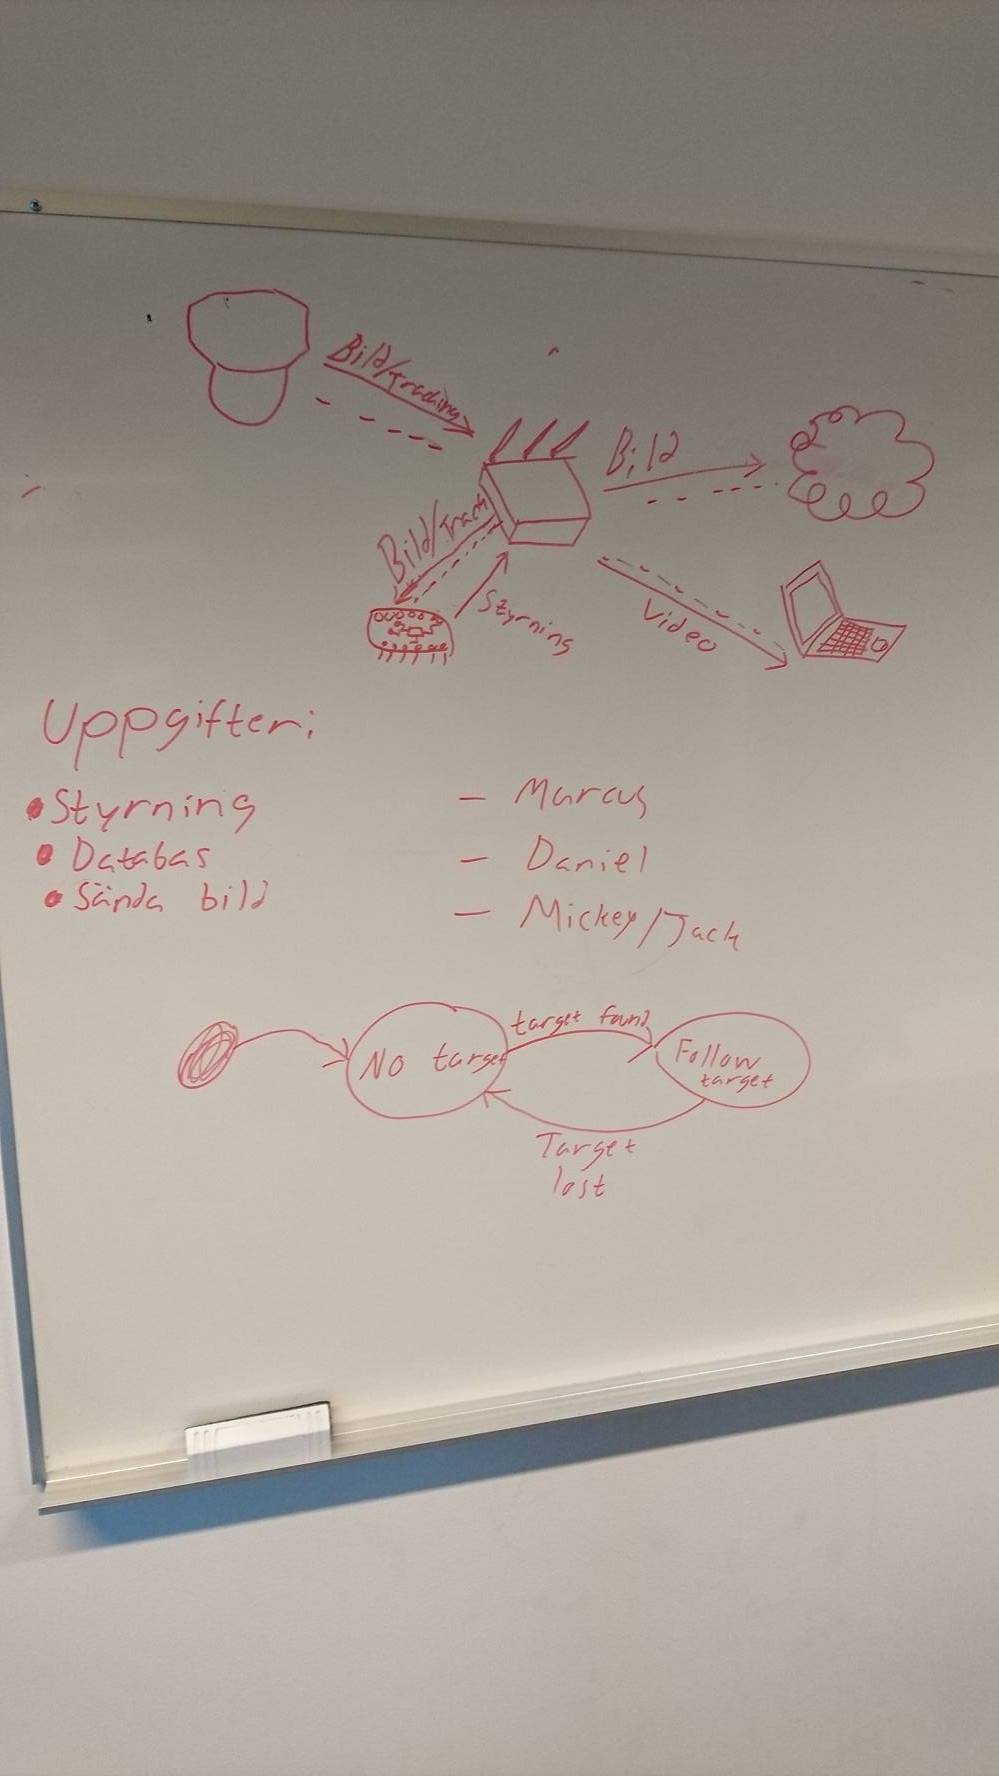 Bild/Tracking
Bild
Bild/Track
Styrning
Video
Uppgifter:
• Styrning — Marcus
• Databas — Daniel
• Sända bild — Mickey/Jack
target found
No target
Follow
target
Target
lost